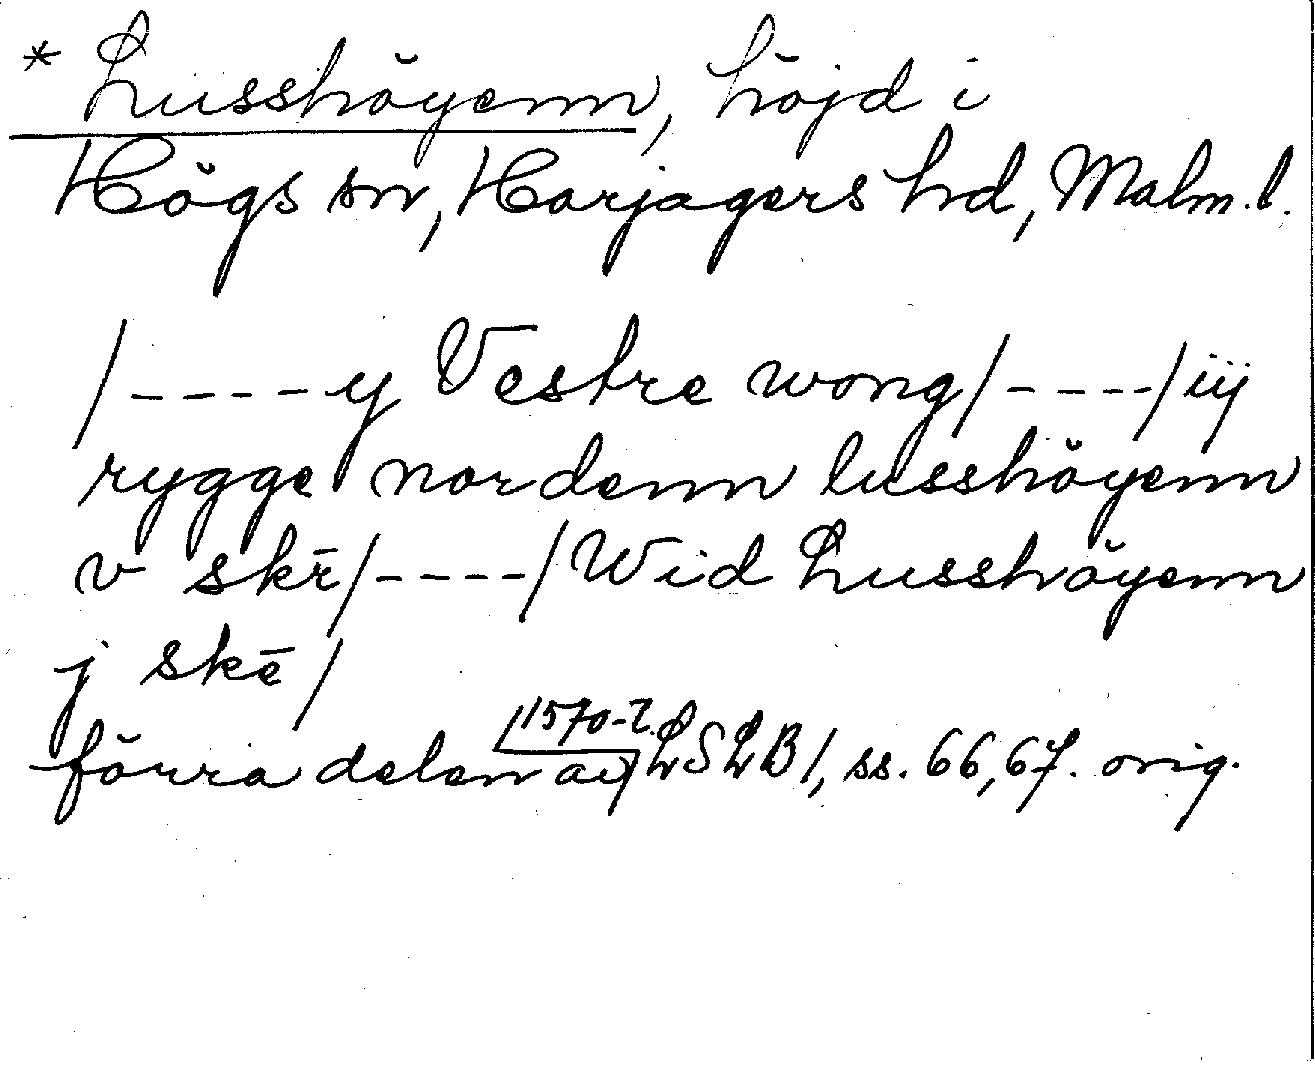 * Lusshöyenn, höjd i
Högs sn, Harjagers hd, Malm. l.
/----y Vestre wong/----/iij
rygge nordenn lusshöyenn
v skē/----/Wid Lusshöyenn
j skē/
/1570-t.
förra delen av/ LSLB1, ss. 66, 67. orig.